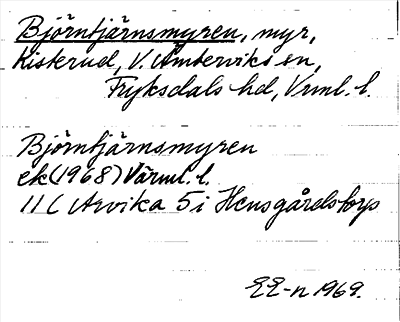 Björntjärnsmyren, myr,
Kisterud, V. Ämterviks sn,
Fryksdals hd, Vrml. l.
Björntjärnsmyren
ek (1968) Värml. l.
11 C Arvika 5 i Hensgårdstorp
EE-n 1969.